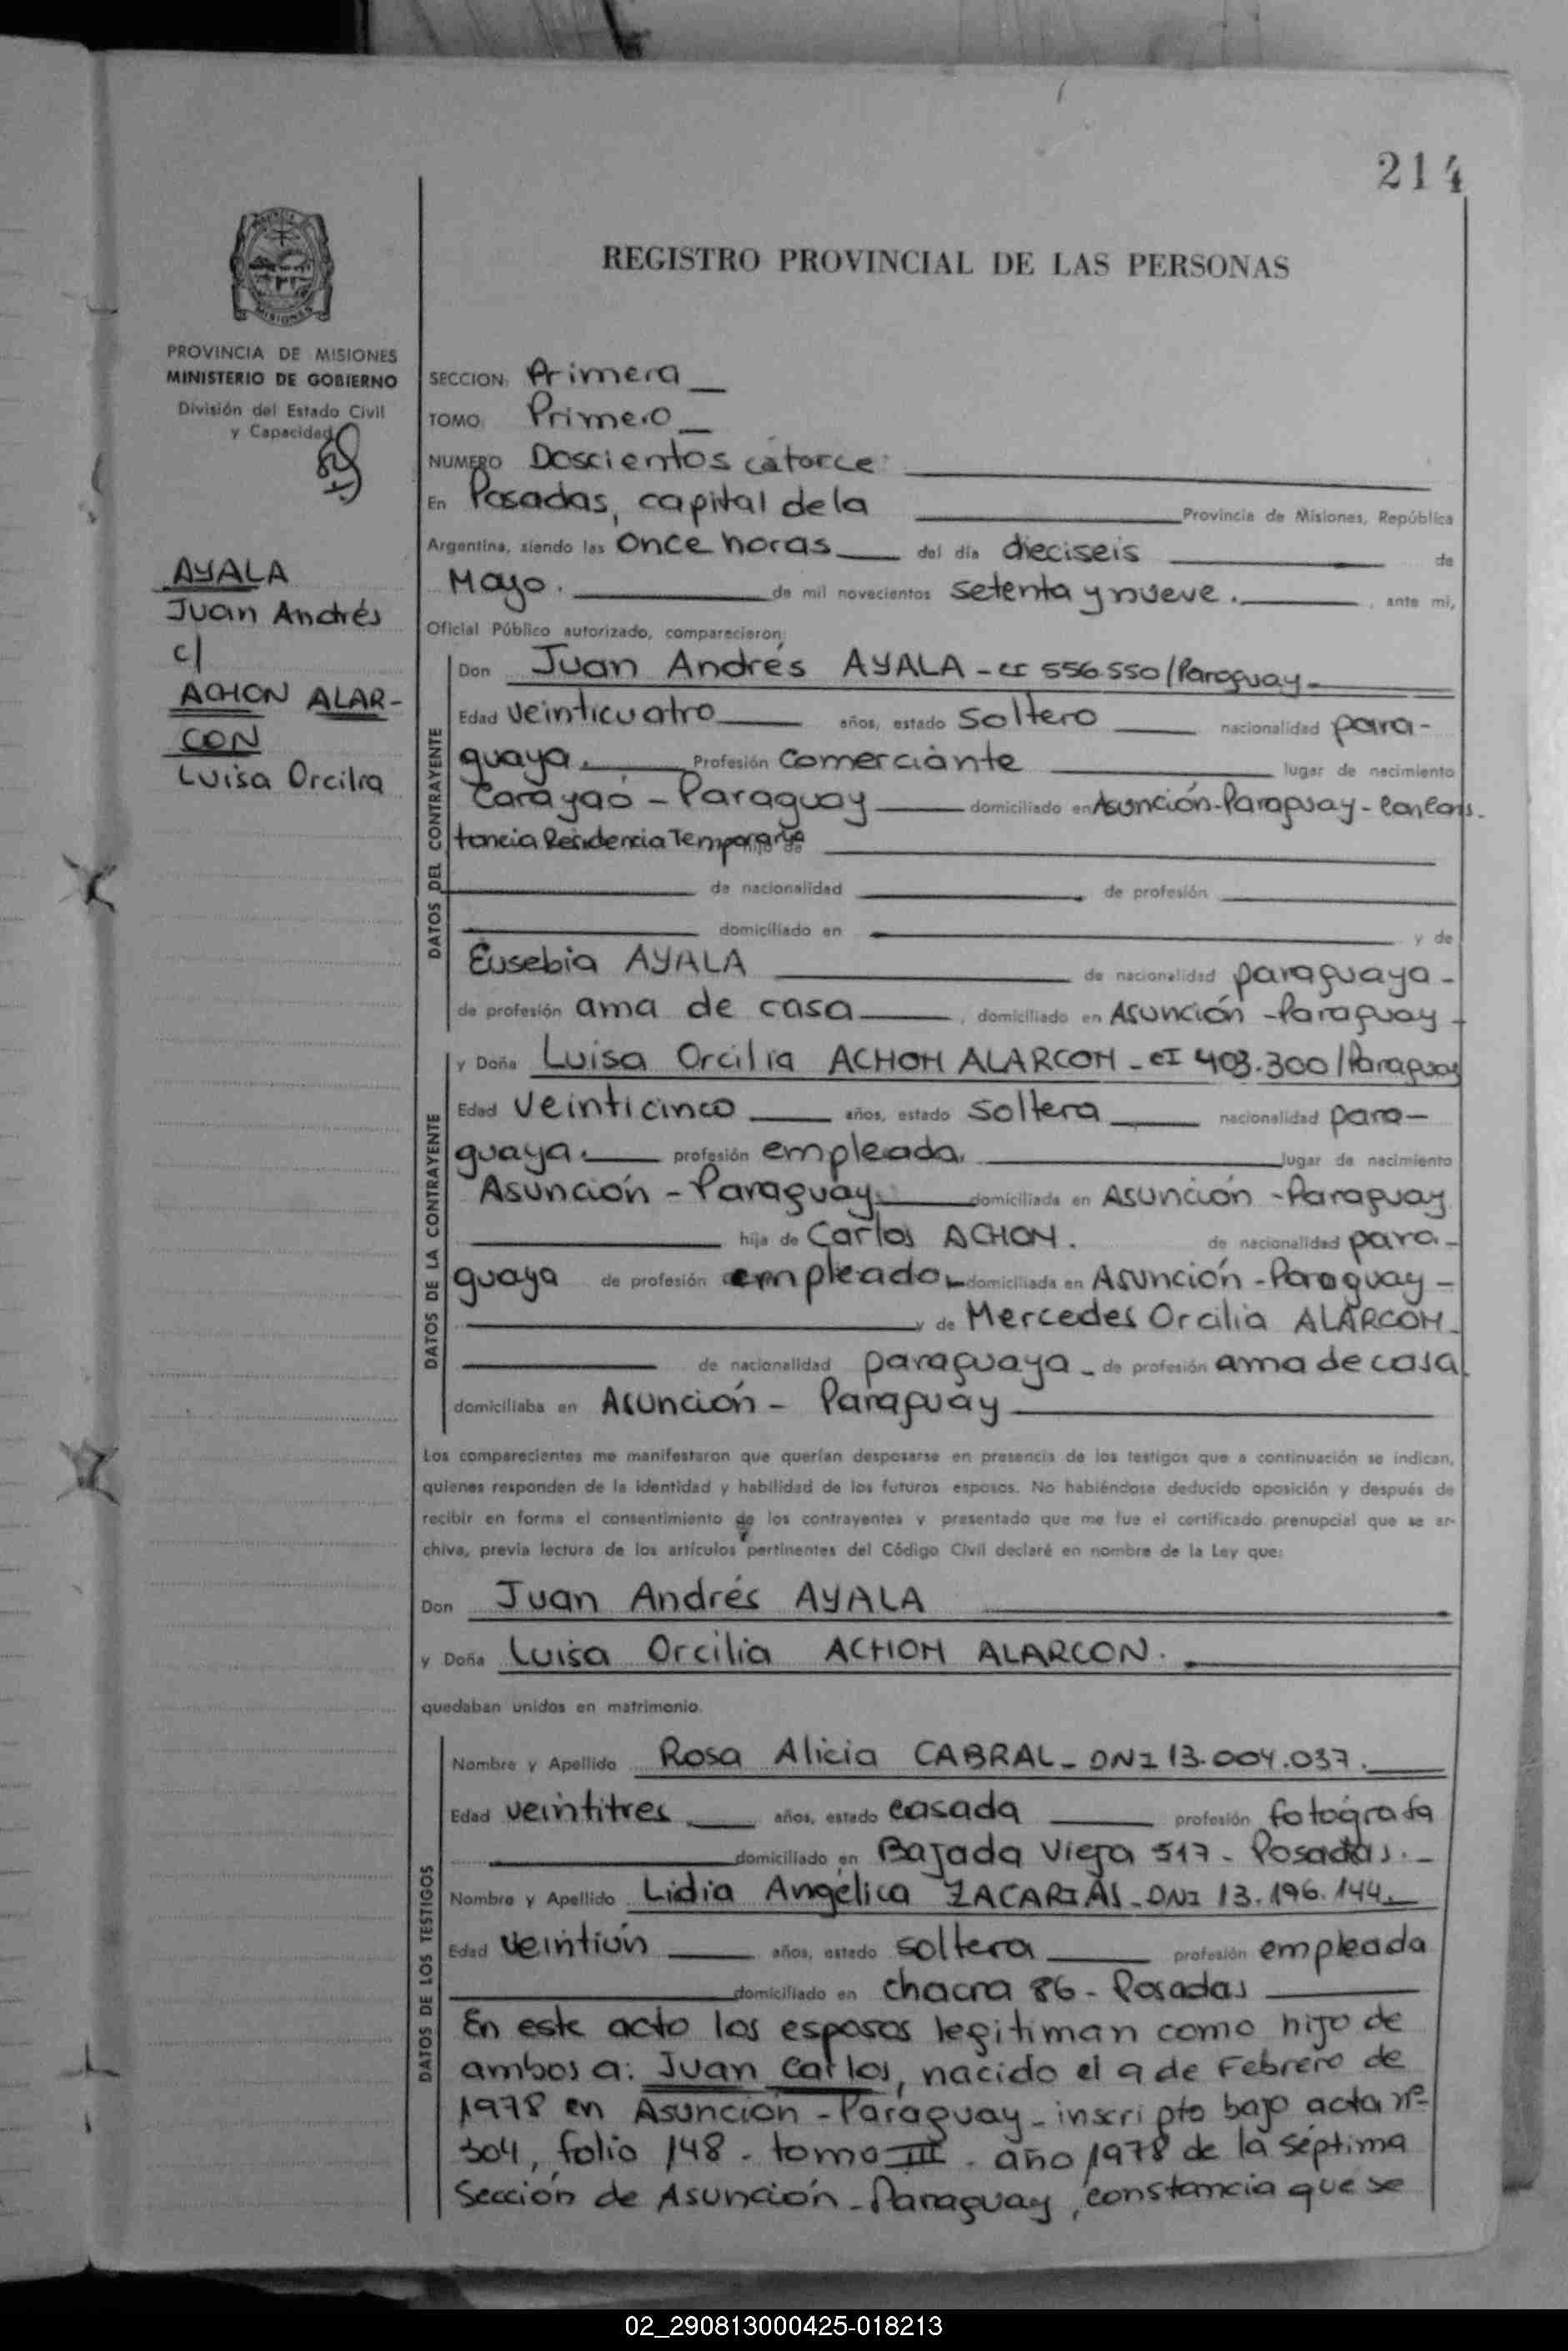 214
REGISTRO PROVINCIAL DE LAS PERSONAS
MISIONES
PROVINCIA DE MISIONES
MINISTERIO DE GOBIERNO
División del Estado Civil
y Capacidad
AYALA
Juan Andrés
c/
ACHON ALAR-
CON
Luisa Orcilia
SECCION: Primera
TOMO: Primero
NUMERO Doscientos catorce
En Posadas, capital de la Provincia de Misiones, República
Argentina, siendo las once horas del día dieciseis de
Mayo. de mil novecientos setenta y nueve. , ante mi,
Oficial Público autorizado, comparecieron:
DATOS DEL CONTRAYENTE
Don Juan Andrés AYALA - CI 556.550/Paraguay -
Edad veinticuatro años, estado soltero nacionalidad para-
guaya. Profesión comerciante lugar de nacimiento
Carayaó - Paraguay domiciliado en Asunción - Paraguay - Con Cons-
tancia Residencia Temporaria hijo de
de nacionalidad de profesión
domiciliado en y de
Eusebia AYALA de nacionalidad paraguaya -
de profesión ama de casa , domiciliado en Asunción - Paraguay -
DATOS DE LA CONTRAYENTE
y Doña Luisa Orcilia ACHON ALARCON - CI 403.300/Paraguay
Edad veinticinco años, estado soltera nacionalidad para-
guaya. profesión empleada. lugar de nacimiento
Asunción - Paraguay. domiciliada en Asunción - Paraguay
hija de Carlos ACHON. de nacionalidad para-
guaya de profesión empleado domiciliada en Asunción - Paraguay -
y de Mercedes Orcilia ALARCON
de nacionalidad paraguaya - de profesión ama de casa
domiciliaba en Asunción - Paraguay
Los comparecientes me manifestaron que querían desposarse en presencia de los testigos que a continuación se indican,
quienes responden de la identidad y habilidad de los futuros esposos. No habiéndose deducido oposición y después de
recibir en forma el consentimiento de los contrayentes y presentado que me fue el certificado prenupcial que se ar-
chiva, previa lectura de los artículos pertinentes del Código Civil declaré en nombre de la Ley que:
Don Juan Andrés AYALA
y Doña Luisa Orcilia ACHON ALARCON.
quedaban unidos en matrimonio.
DATOS DE LOS TESTIGOS
Nombre y Apellido Rosa Alicia CABRAL - DNI 13.004.037.
Edad veintitres años, estado casada profesión fotógrafa
domiciliado en Bajada Vieja 517 - Posadas. -
Nombre y Apellido Lidia Angélica ZACARIAS - DNI 13.196.144.
Edad veintiún años, estado soltera profesión empleada
domiciliado en chacra 86 - Posadas
En este acto los esposos legitiman como hijo de
ambos a: Juan Carlos, nacido el 9 de Febrero de
1978 en Asunción - Paraguay - inscripto bajo acta nº
304, folio 148 - tomo III - año 1978 de la séptima
Sección de Asunción - Paraguay, constancia que se
02_290813000425-018213